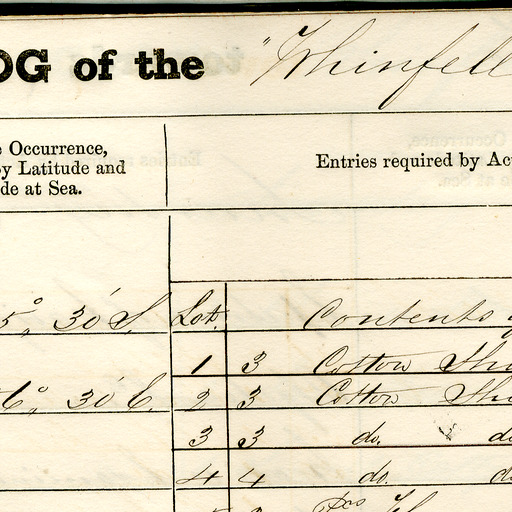 OG of the "Whinfell
Occurrence,
by Latitude and
de at Sea.
Entries required by Ac
5° 30' S. Lot. Contents
1 3 Cotton Shi
6° 30' E. 2 3 Cotton Shi
3 3 do. do
4 4 do. do
Pcs